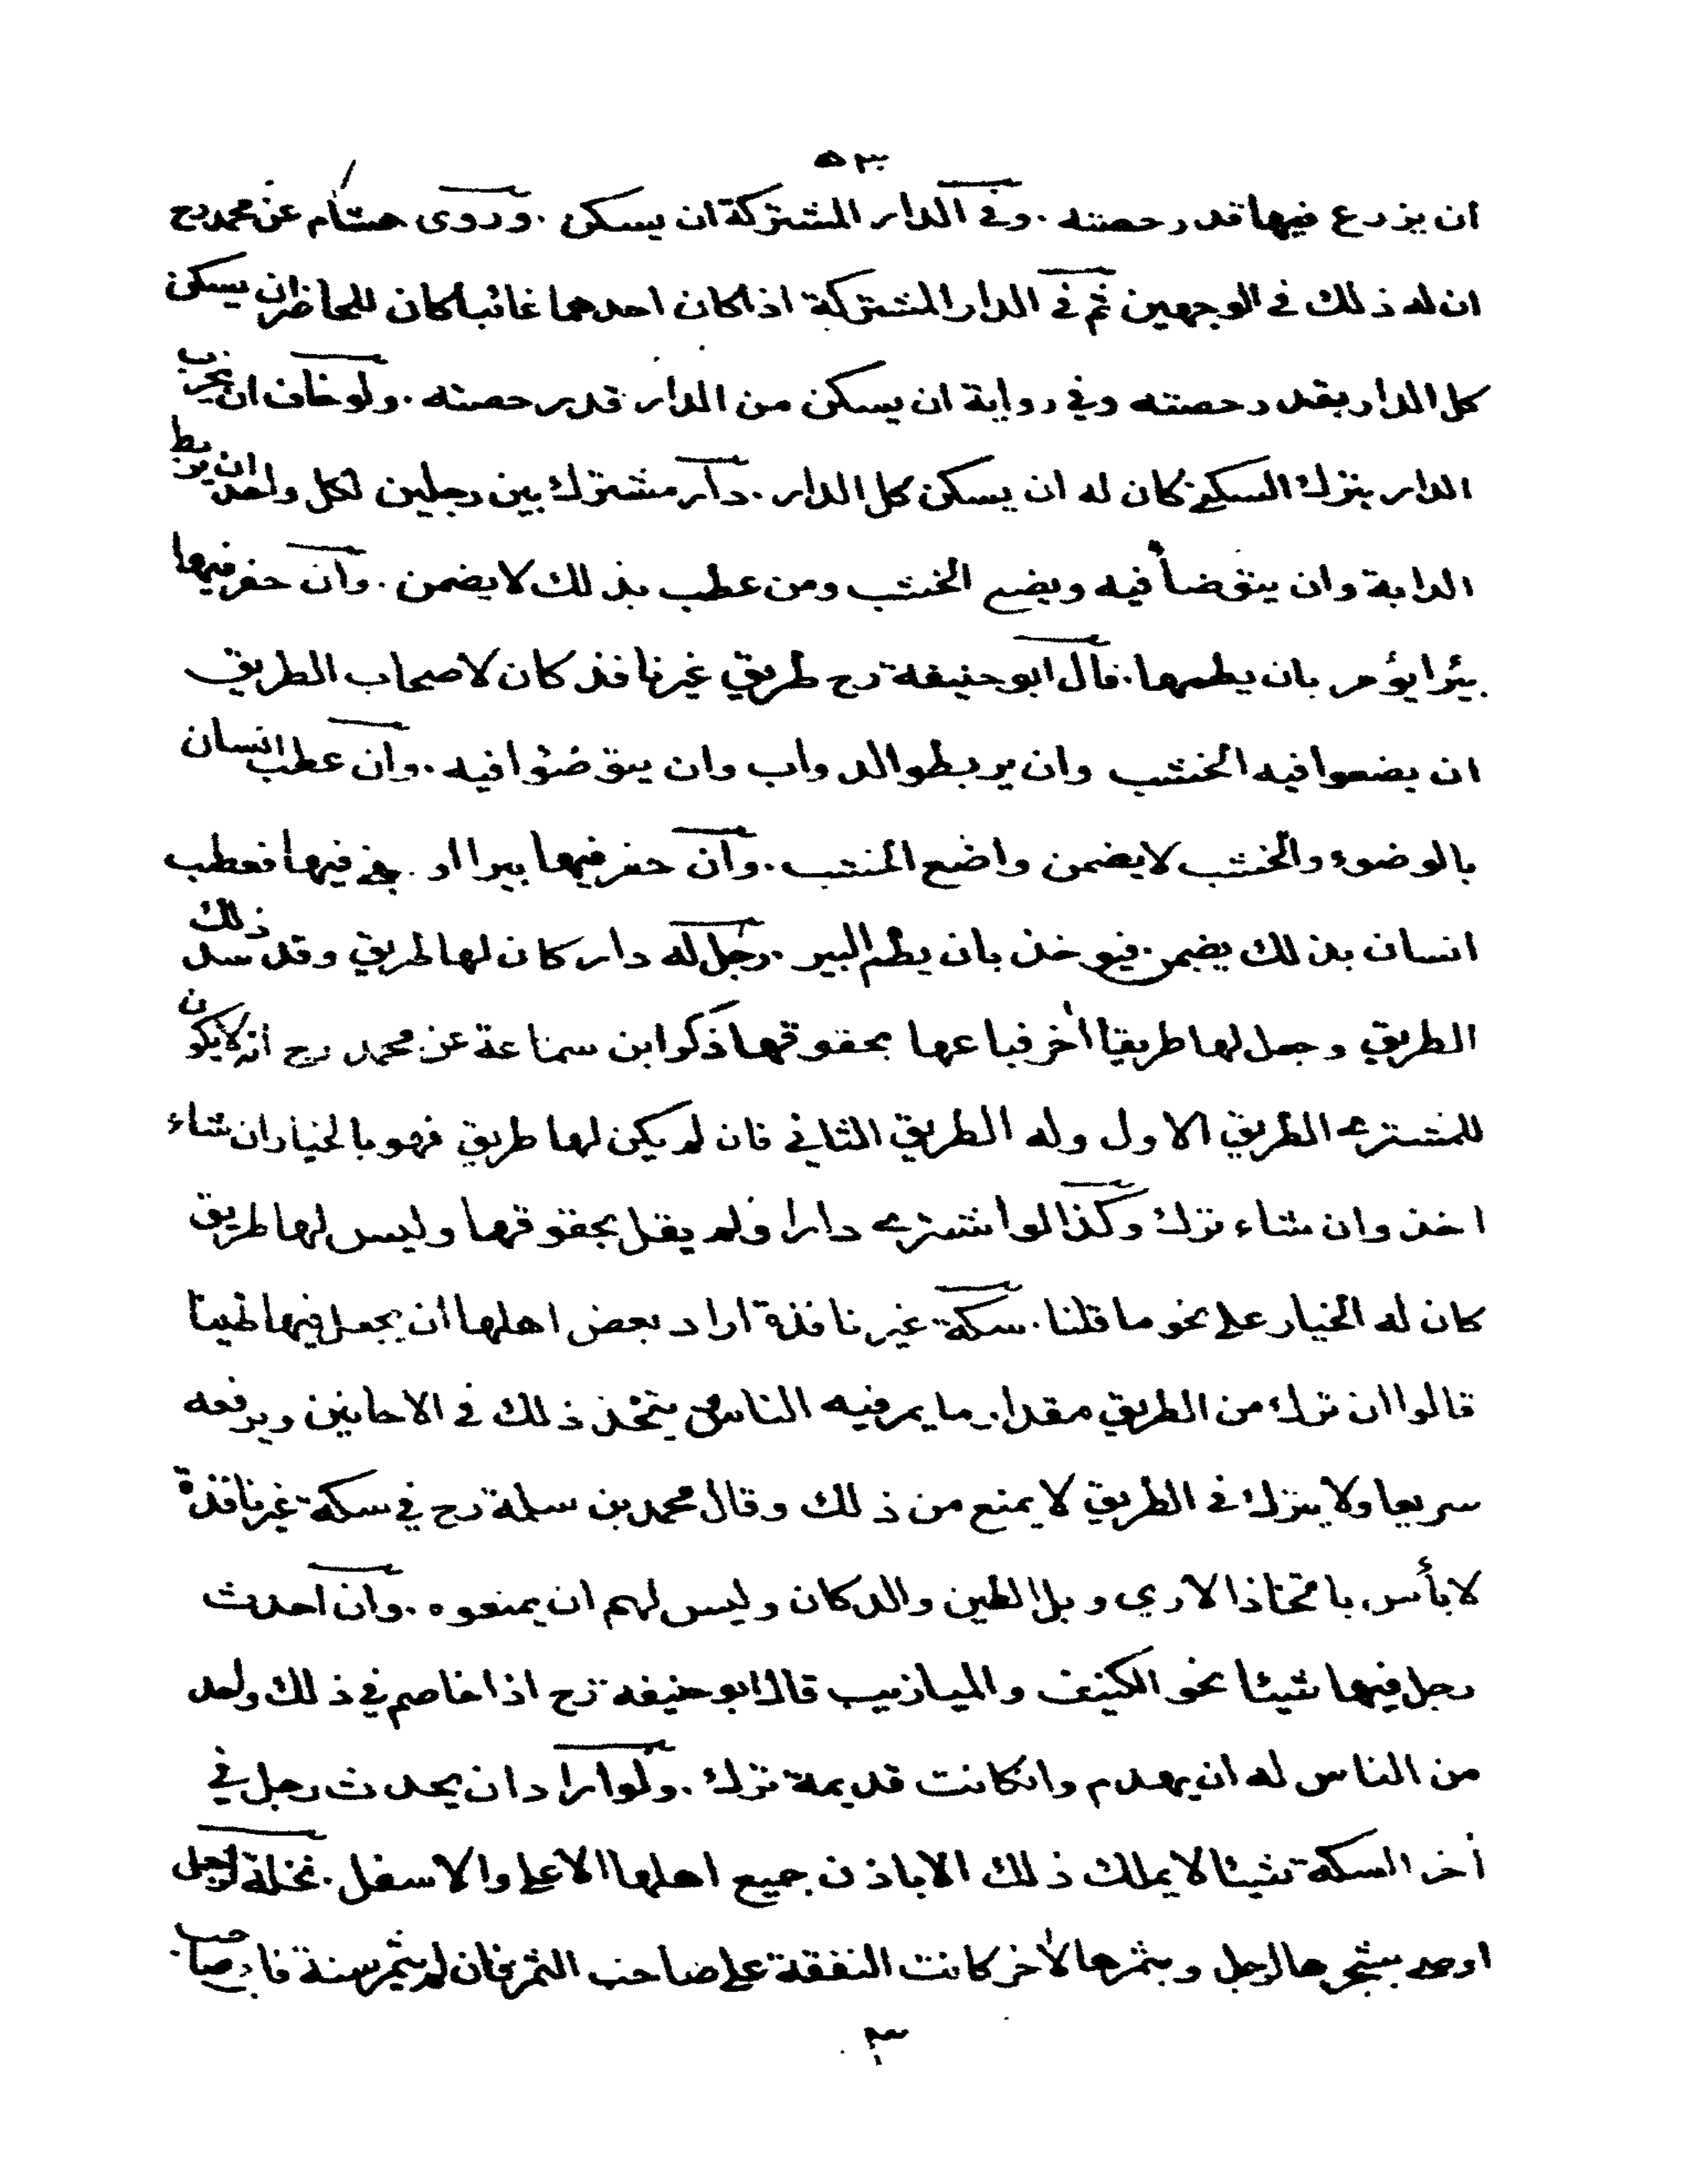 ٥٣
ان يزرع فيها قدر حصته . وفي الدار المشتركة ان يسكن . وروى هشام عن محمد رح
ان له ذلك في الوجهين ثم في الدار المشتركة اذا كان احدهما غائبا كان للحاضر ان يسكن
كل الدار بقدر حصته وفي رواية ان يسكن من الدار قدر حصته . ولو خاف ان يخرب
الدار بترك السكنى كان له ان يسكن كل الدار . دار مشترك بين رجلين لكل واحد ان يربط
الدابة وان يتوضأ فيه ويضع الخشب ومن عطب بذلك لا يضمن . وان حفر فيها
بيئرا يؤمر بان يطمها . قال ابو حنيفة رح طريق غير نافذ كان لاصحاب الطريق
ان يضعوا فيه الخشب وان يربطوا الدواب وان يتوضئوا فيه . وان عطب انسان
بالوضوء والخشب لا يضمن واضع الخشب . وان حفر فيها بيرا او بنى فيها فعطب
انسان بذلك يضمن فيوخذ بان يطم البير . رجل له دار كان لها طريق وقد سد ذلك
الطريق وجعل لها طريقا اخر فباعها بحقوقها ذكر ابن سماعة عن محمد رح انه لا يكون
للمشترى الطريق الاول وله الطريق الثاني فان لم يكن لها طريق فهو بالخيار ان شاء
اخذ وان شاء ترك وكذا لو اشترى دارا ولم يقل بحقوقها وليس لها طريق
كان له الخيار على نحو ما قلنا . سكة غير نافذة اراد بعض اهلها ان يجعل فيها طينا
قالوا ان ترك من الطريق مقدار ما يمر فيه الناس يتخذ ذلك في الاحايين ويرفعه
سريعا ولا يترك في الطريق لا يمنع من ذلك وقال محمد بن سلمة رح في سكة غير نافذة
لا بأس باتخاذ الاري وبل الطين والدكان وليس لهم ان يمنعوه . وان احدث
رجل فيها شيئا نحو الكنيف والميازيب قال ابو حنيفه رح اذا خاصم في ذلك واحد
من الناس له ان يهدم وانكانت قديمة ترك . ولو اراد ان يحدث رجل في
أخر السكة شيئا لا يملك ذلك الا باذن جميع اهلها الاعلى والاسفل . نخلة لرجل
اوصى بشجرها لرجل وبثمرها لاخر كانت النفقة على صاحب الثمر فان لم يثمر سنة فا صاحب
٣